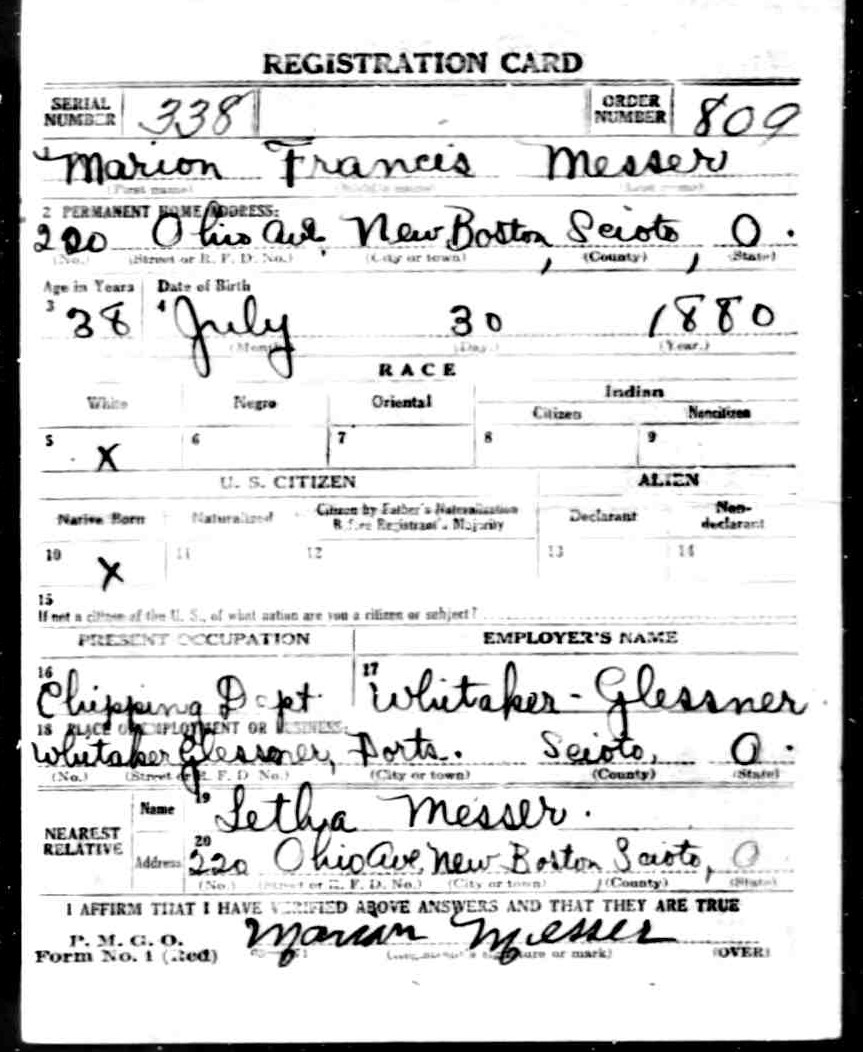 REGISTRATION CARD
SERIAL NUMBER 338 ORDER NUMBER 809
1 Marion Francis Messer
(First name) (Middle name) (Last name)
2 PERMANENT HOME ADDRESS:
220 Ohio Ave, New Boston, Scioto, O.
(No.) (Street or R. F. D. No.) (City or town) (County) (State)
Age in Years Date of Birth
3 38 4 July 30 1880
(Month) (Day.) (Year.)
RACE
White Negro Oriental Indian
Citizen Noncitizen
5 X 6 7 8 9
U. S. CITIZEN ALIEN
Native Born Naturalized Citizen by Father's Naturalization Before Registrant's Majority Declarant Non-declarant
10 X 11 12 13 14
15
If not a citizen of the U. S., of what nation are you a citizen or subject?
PRESENT OCCUPATION EMPLOYER'S NAME
16 Chipping Dept 17 Whitaker-Glessner
18 PLACE OF EMPLOYMENT OR BUSINESS:
Whitaker Glessner, Ports. Scioto, O.
(No.) (Street or R. F. D. No.) (City or town) (County) (State)
NEAREST RELATIVE
Name 19 Letha Messer.
Address 20 220 Ohio Ave, New Boston Scioto, O
(No.) (Street or R. F. D. No.) (City or town) (County) (State)
I AFFIRM THAT I HAVE VERIFIED ABOVE ANSWERS AND THAT THEY ARE TRUE
P. M. G. O.
Form No. 1 (Red) Marion Messer
(Registrant's signature or mark) (OVER)